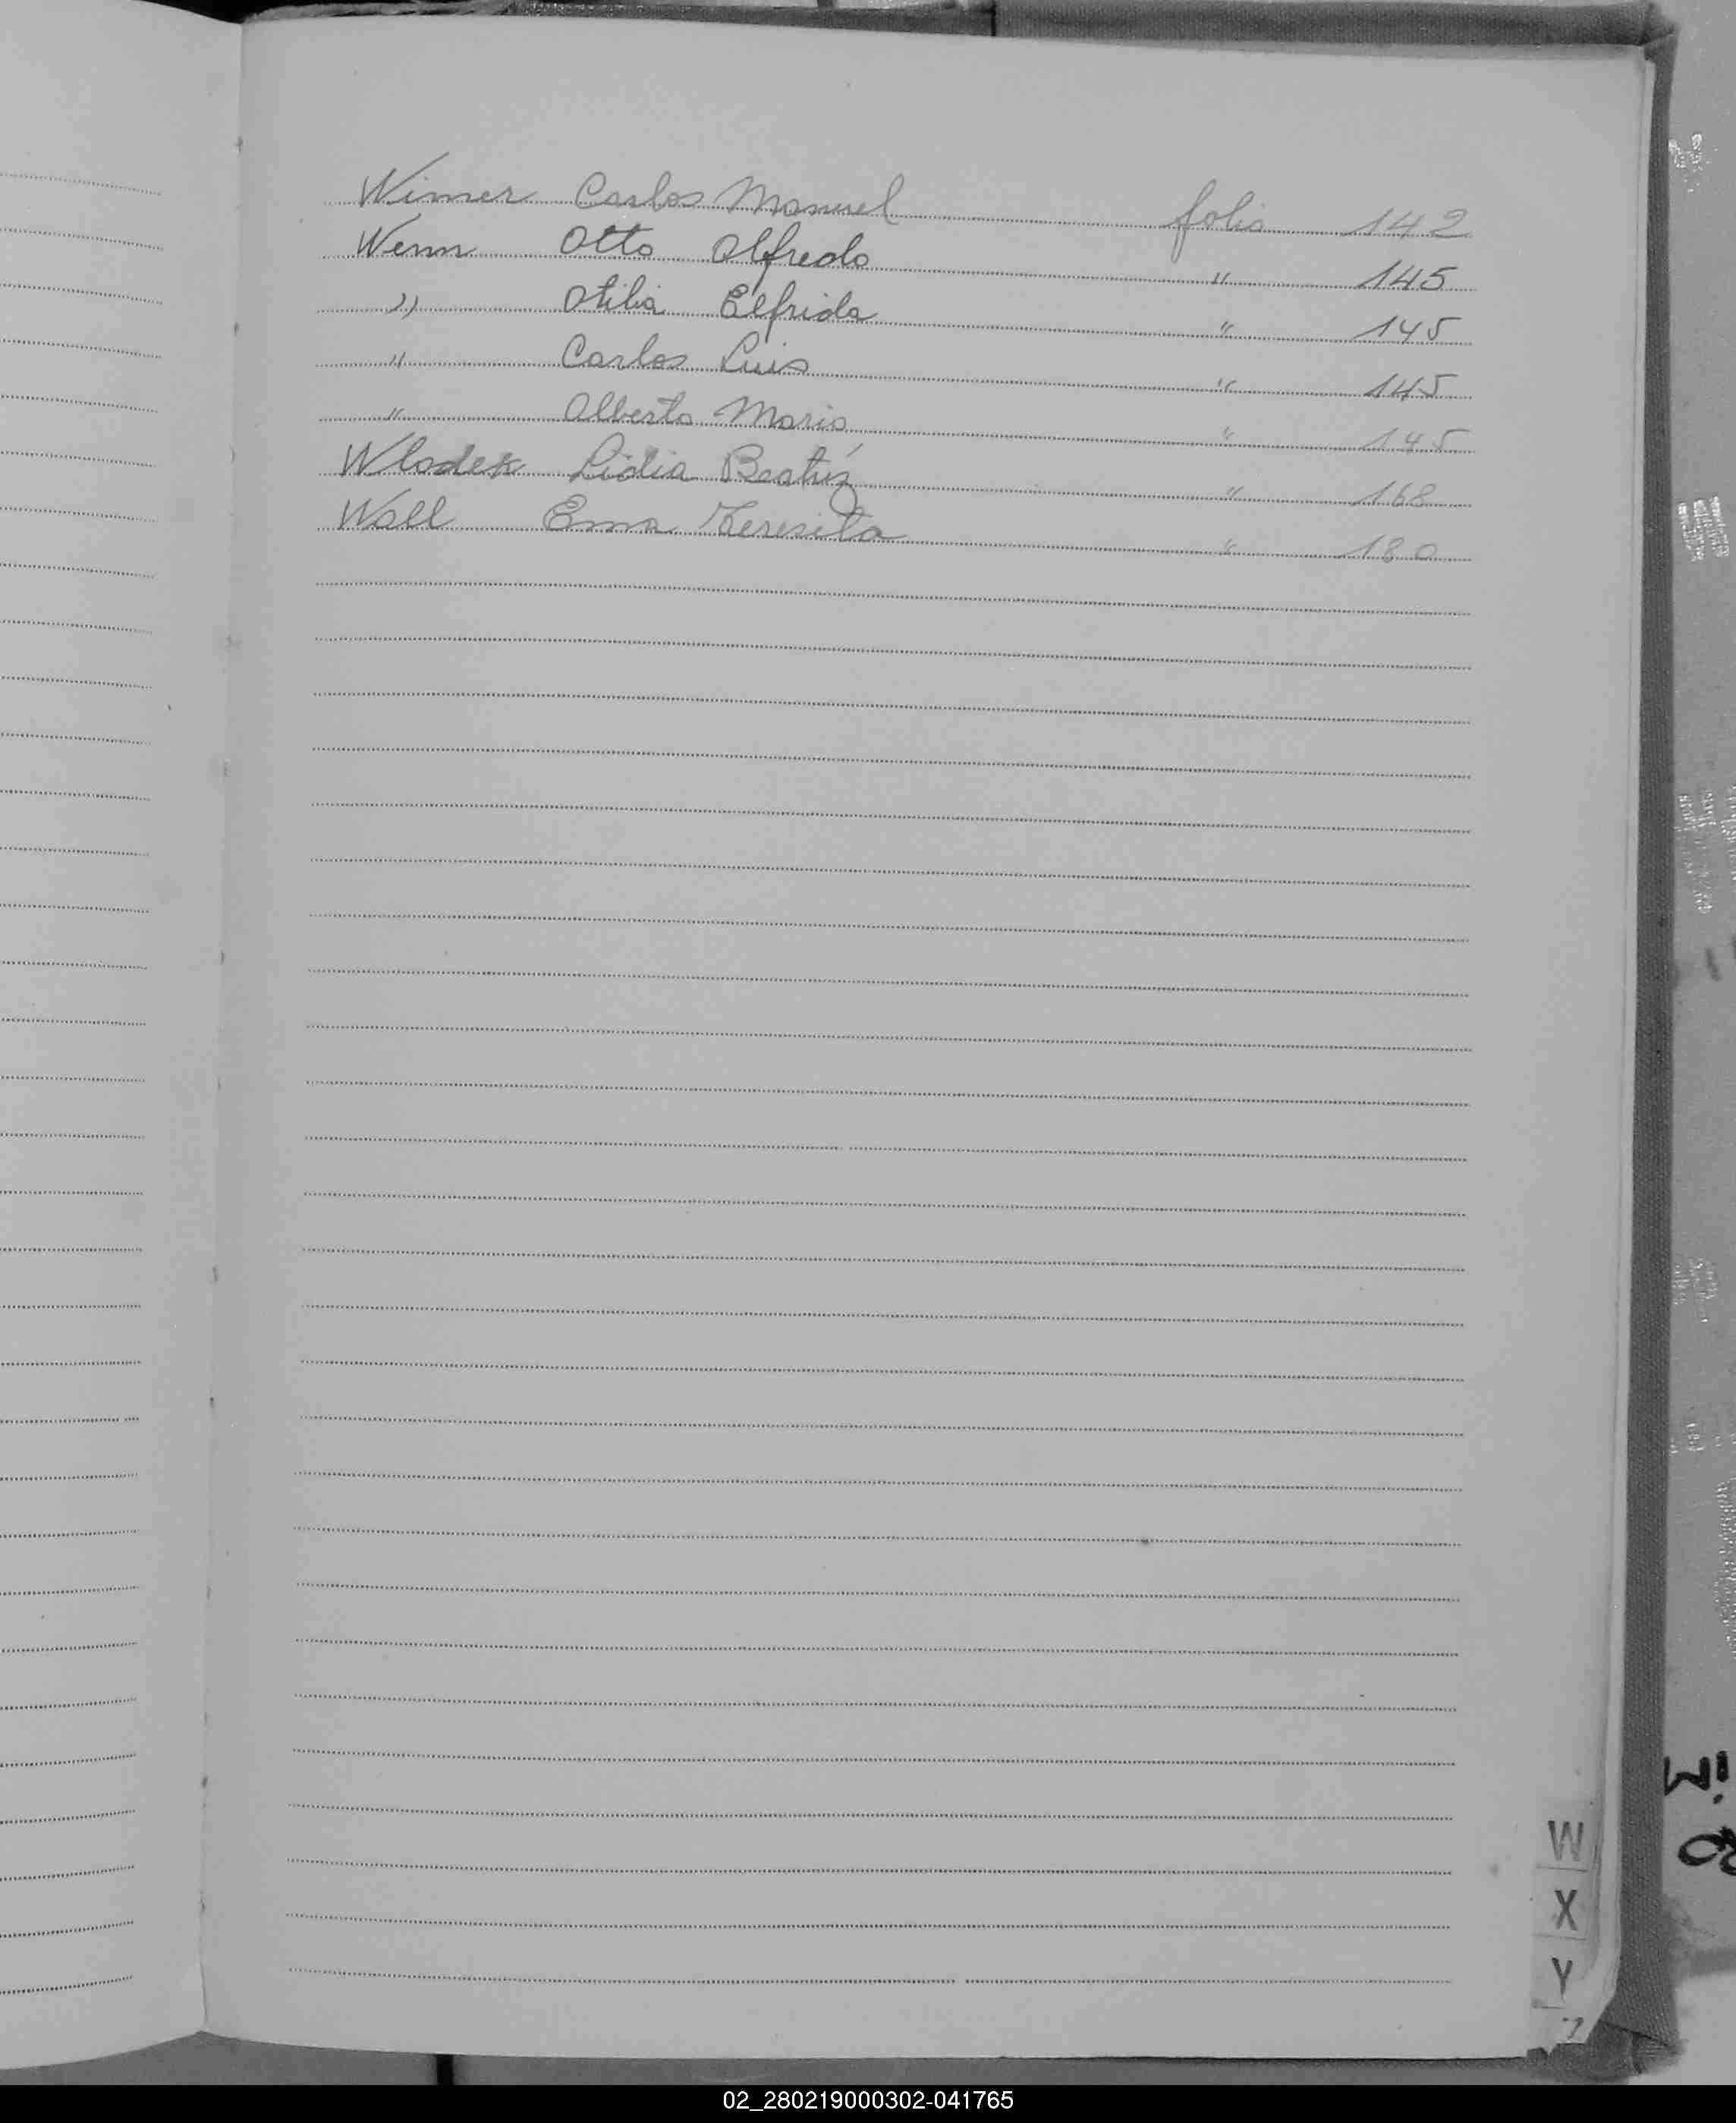 Wimer Carlos Manuel folio 142
Wenn Otto Alfredo " 145
" Otilia Elfrida " 145
" Carlos Luis " 145
" Alberto Mario " 145
Wlodek Lidia Beatríz " 168
Wall Ema Teresita " 180
W
X
Y
02_280219000302-041765